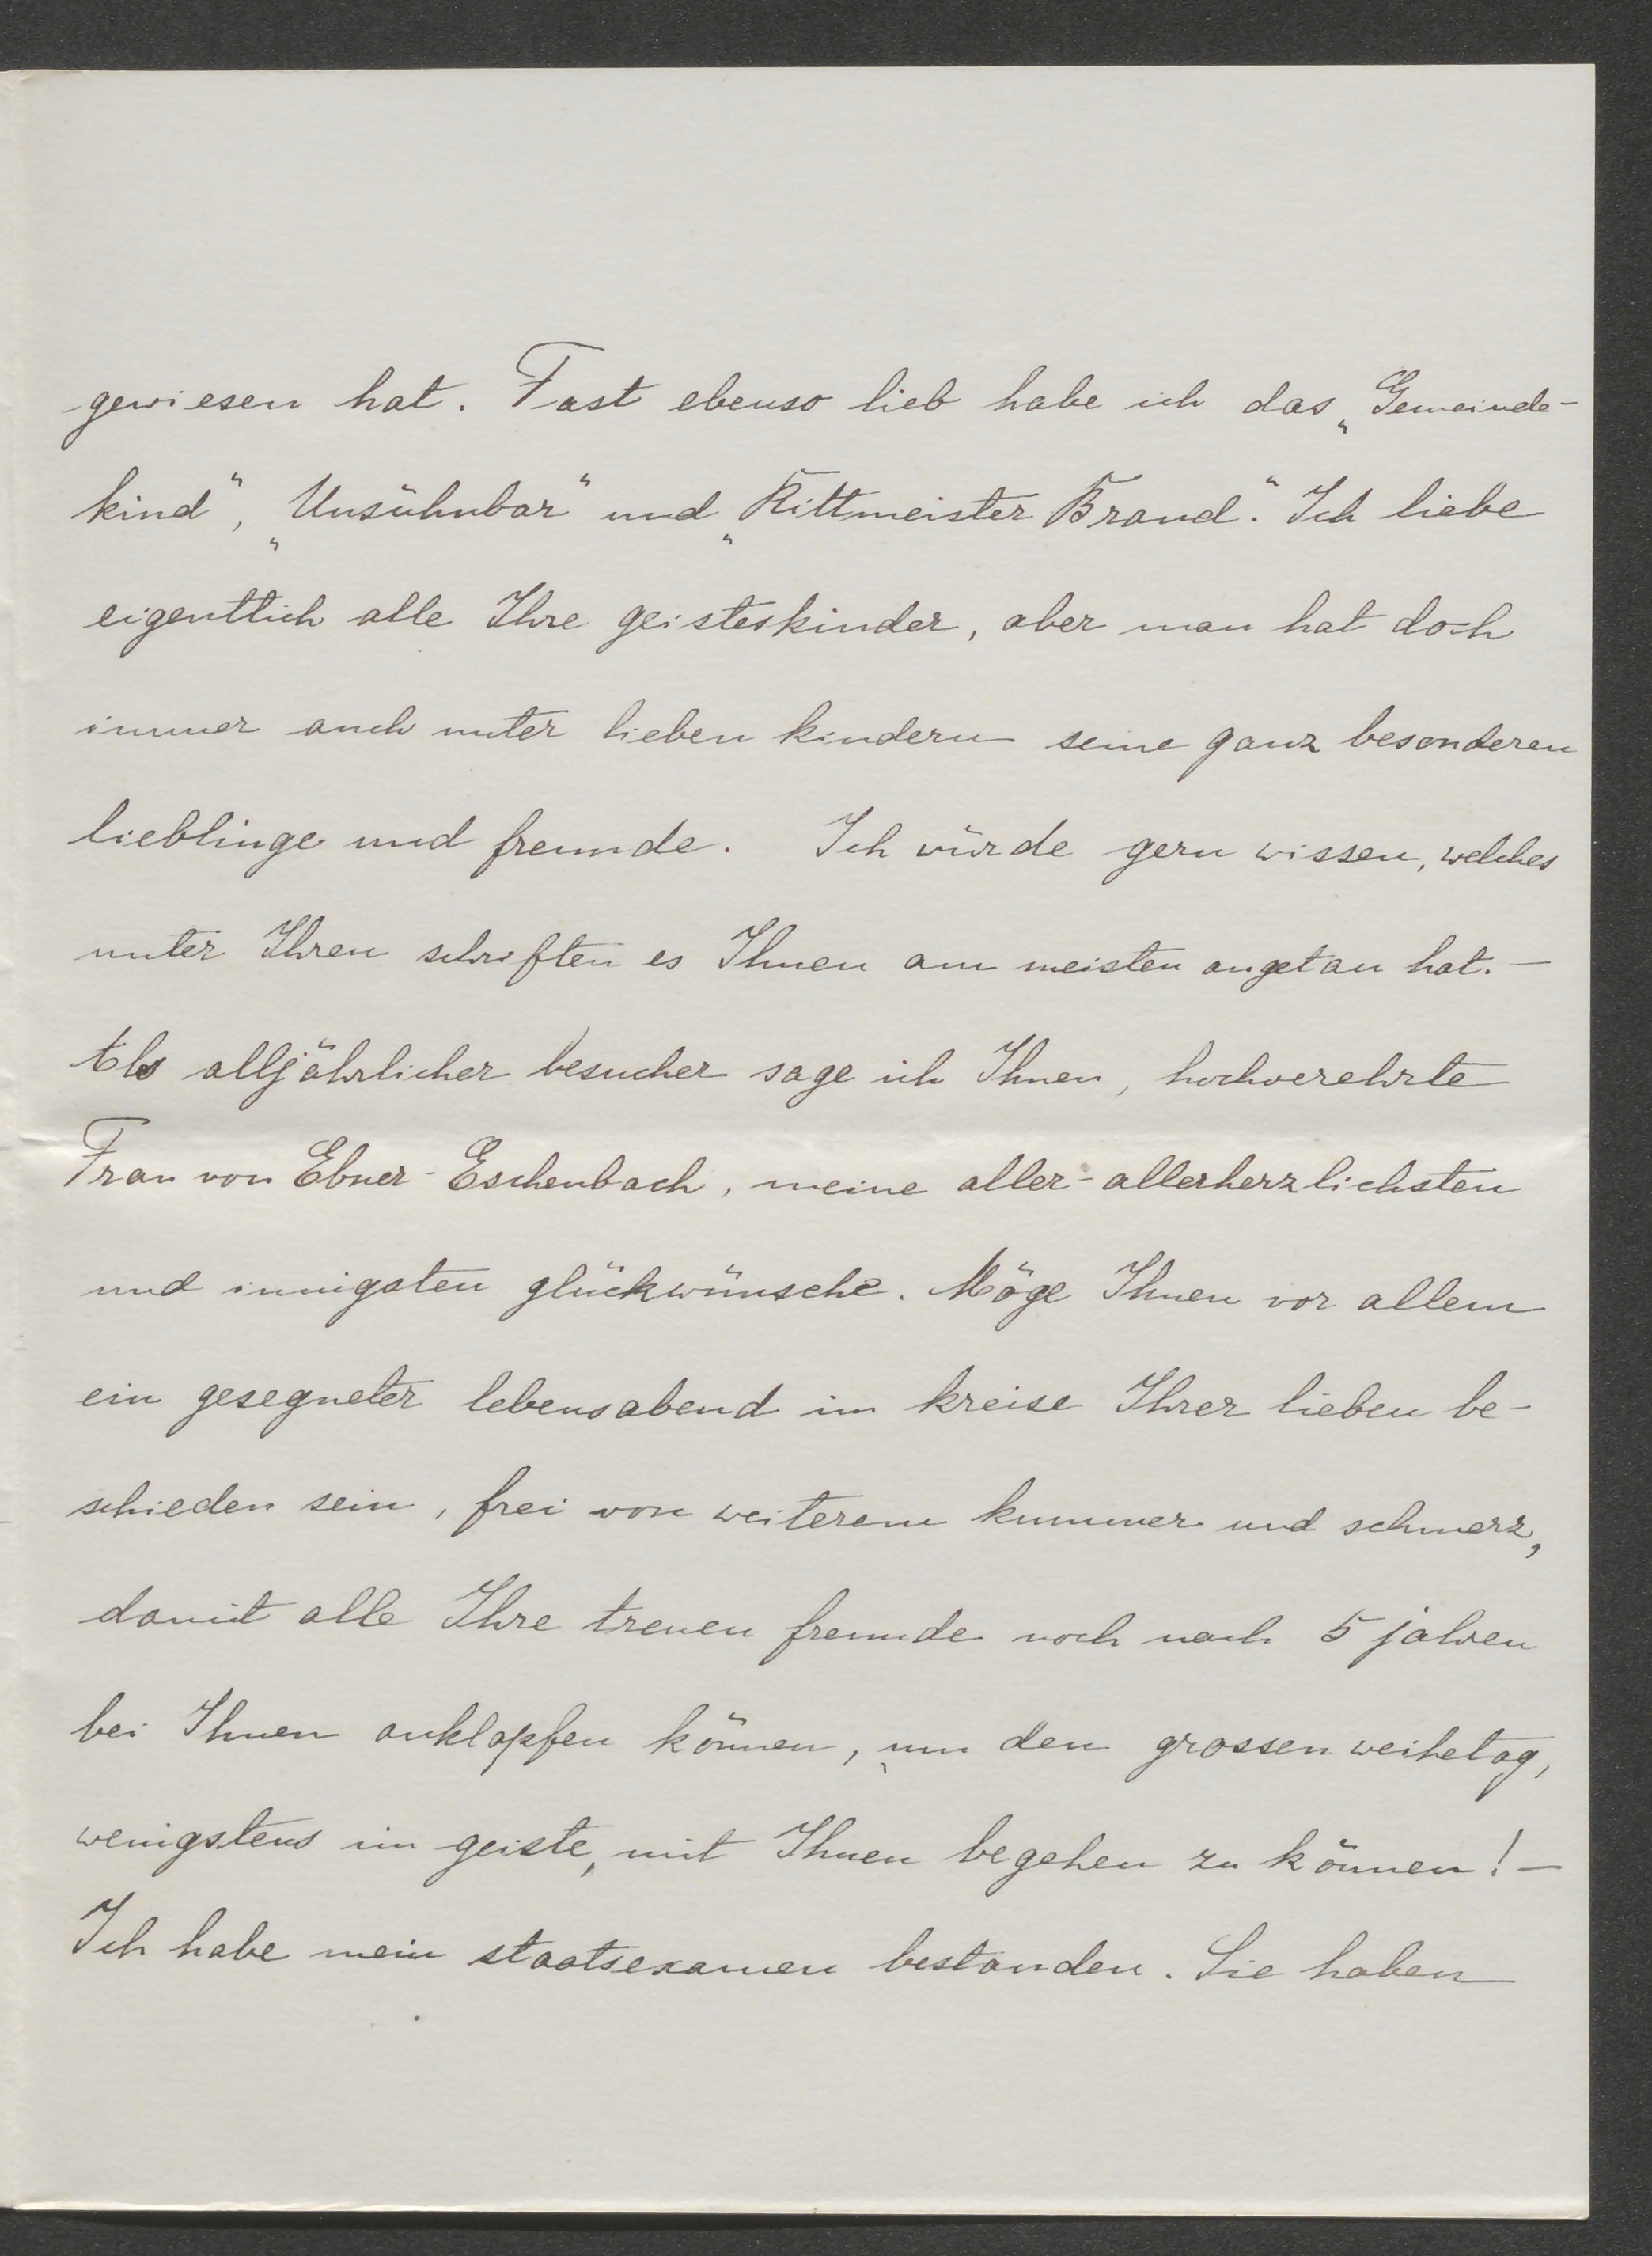 gewiesen hat. Fast ebenso lieb habe ich das „Gemeinde-
kind“, „Unsühnbar“ und „Rittmeister Brand“. Ich liebe
eigentlich alle Ihre geisteskinder, aber man hat doch
immer auch unter lieben kindern seine ganz besonderen
lieblinge und freunde. Ich würde gern wissen, welches
unter Ihren schriften es Ihnen am meisten angetan hat. —
Als alljährlicher besucher sage ich Ihnen, hochverehrte
Frau von Ebner-Eschenbach, meine aller-allerherzlichsten
und innigsten glückwünsche. Möge Ihnen vor allem
ein gesegneter lebensabend im kreise Ihrer lieben be-
schieden sein, frei von weiterem kummer und schmerz,
damit alle Ihre treuen freunde noch nach 5 jahren
bei Ihnen anklopfen können, um den grossen weihetag,
wenigstens im geiste, mit Ihnen begehen zu können! —
Ich habe mein staatsexamen bestanden. Sie haben